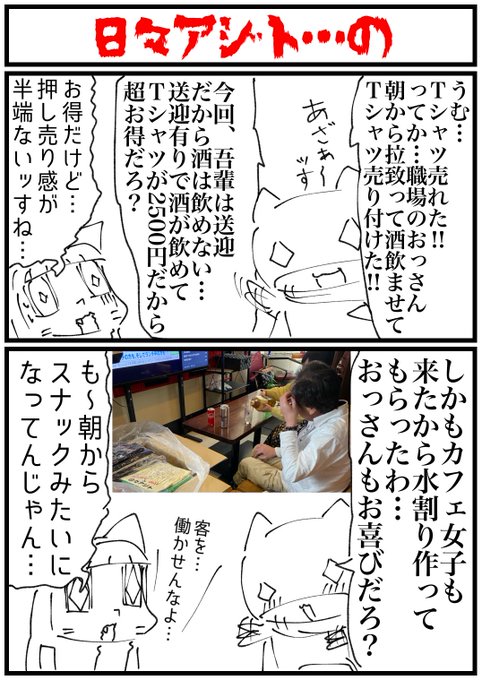 日々アジト…の
うむ…
Tシャツ売れた!!
ってか…職場のおっさん
朝から拉致って酒飲ませて
Tシャツ売り付けた!!
あざぁ〜
ッす
今回、吾輩は送迎
だから酒は飲めない…
送迎有りで酒が飲めて
Tシャツが2500円だから
超お得だろ？
お得だけど…
押し売り感が
半端ないッすね…
しかもカフェ女子も
来たから水割り作って
もらったわ…
おっさんもお喜びだろ？
客を…
働かせんなよ…
も〜朝から
スナックみたいに
なってんじゃん…